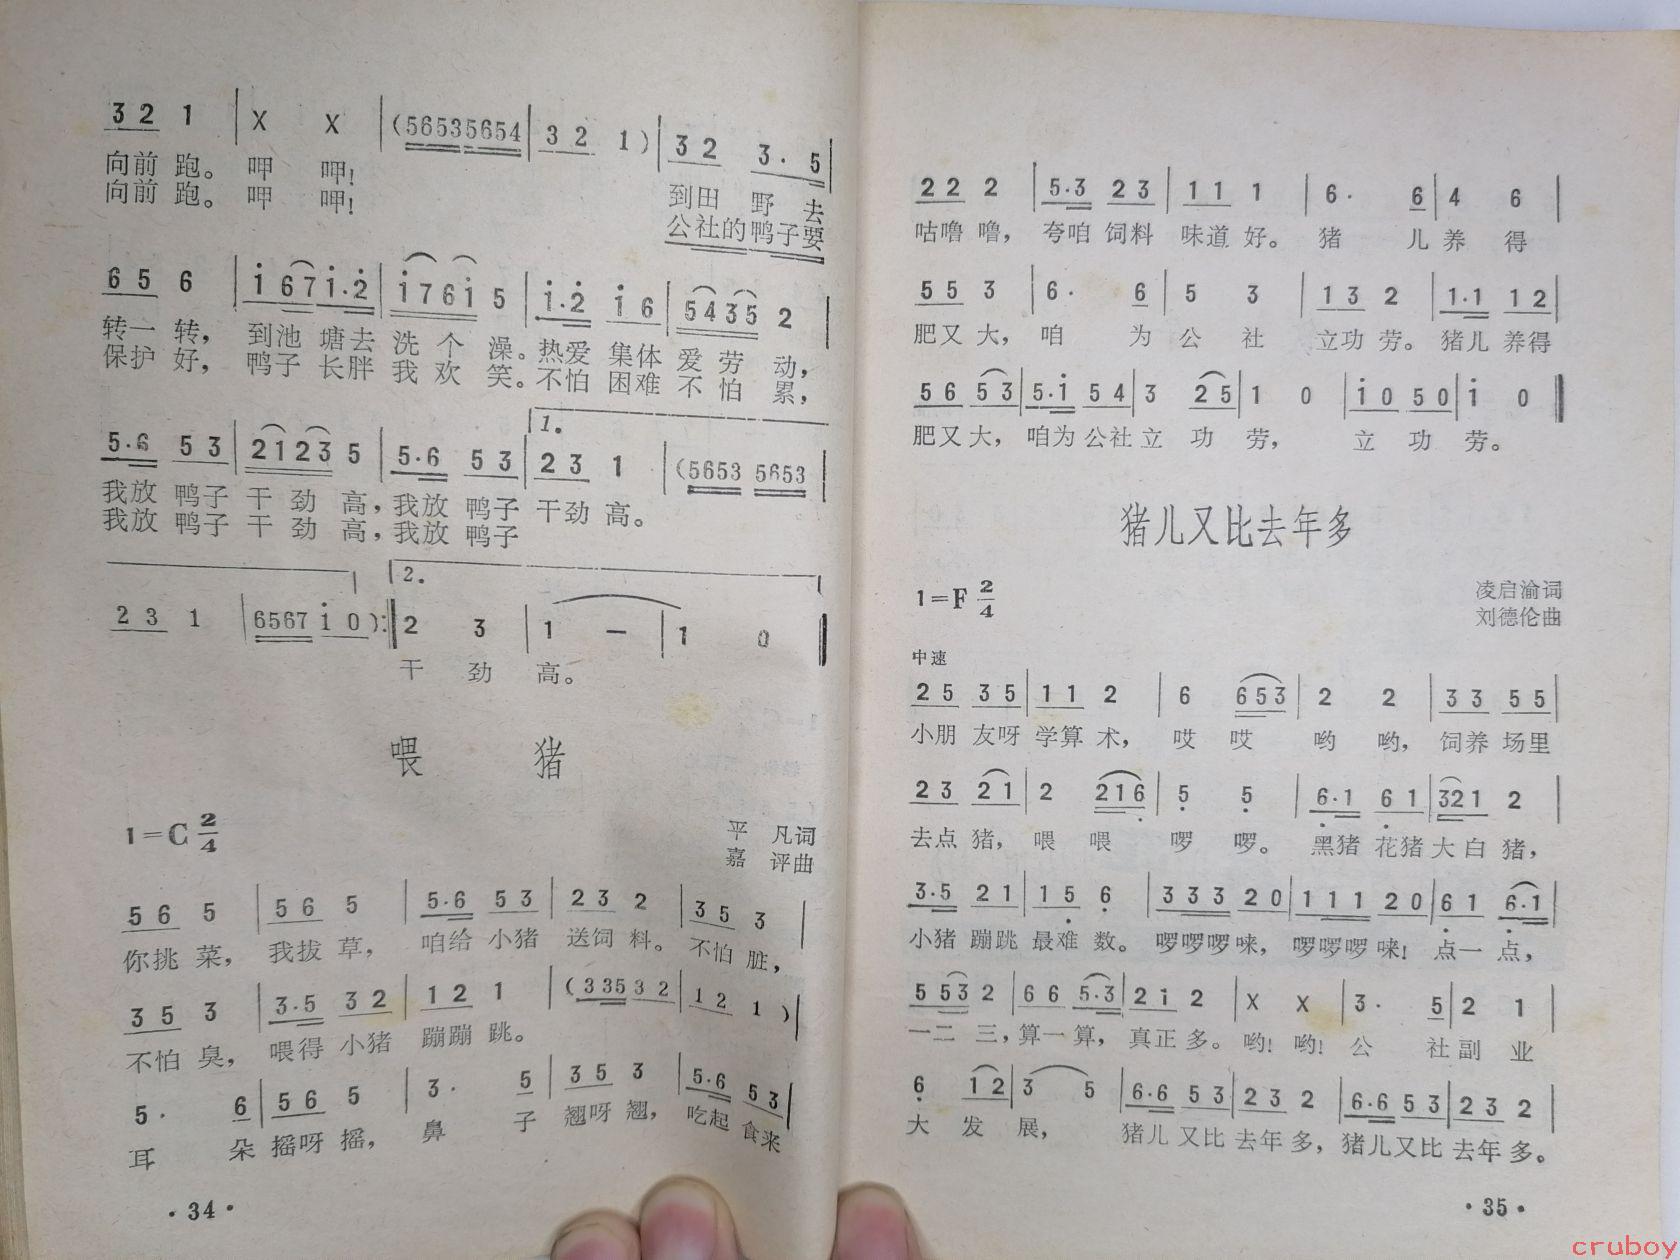 3 2 1 | X X | (56535654 | 3 2 1) | 3 2 3· 5 |
向前 跑。 呷 呷! 到田 野 去
向前 跑。 呷 呷! 公社的鸭子要
6 5 6 | i 67 i·2 | i76i 5 | i·2 i 6 | 5435 2 |
转一 转, 到池 塘去 洗 个 澡。 热爱 集体 爱 劳 动,
保护 好, 鸭子 长胖 我 欢 笑。 不怕 困难 不 怕 累,
1.
5·6 5 3 | 2123 5 | 5·6 5 3 | 2 3 1 | (5653 5653 |
我放 鸭子 干 劲 高, 我放 鸭子 干劲 高。
我放 鸭子 干 劲 高, 我放 鸭子
2.
2 3 1 | 6567 i 0 ):‖ 2 3 | 1 — | 1 0 ‖
干 劲 高。
喂 猪
1=C 2/4
平 凡词
嘉 评曲
5 6 5 | 5 6 5 | 5·6 5 3 | 2 3 2 | 3 5 3 |
你挑 菜, 我拔 草, 咱给 小猪 送饲 料。 不怕 脏,
3 5 3 | 3·5 3 2 | 1 2 1 | (335 3 2 | 1 2 1 ) |
不怕 臭, 喂得 小猪 蹦蹦 跳。
5· 6 | 5 6 5 | 3· 5 | 3 5 3 | 5·6 5 3 |
耳 朵 摇呀 摇, 鼻 子 翘呀 翘, 吃起 食来
·34·
2 2 2 | 5·3 2 3 | 1 1 1 | 6· 6 | 4 6 |
咕噜 噜, 夸咱 饲料 味道 好。 猪 儿 养 得
5 5 3 | 6· 6 | 5 3 | 1 3 2 | 1·1 1 2 |
肥又 大, 咱 为 公 社 立功 劳。 猪儿 养得
5 6 5 3 | 5·i 5 4 | 3 2 5 | 1 0 | i 0 5 0 | i 0 ‖
肥又 大, 咱为 公社 立 功 劳, 立 功 劳。
猪儿又比去年多
1=F 2/4
凌启渝词
刘德伦曲
中速
2 5 3 5 | 1 1 2 | 6 653 | 2 2 | 3 3 5 5 |
小朋 友呀 学算 术, 哎 哎 哟 哟, 饲养 场里
2 3 2 1 | 2 216 | 5 5 | 6·1 6 1 | 321 2 |
去点 猪, 喂 喂 啰 啰。 黑猪 花猪 大白 猪,
3·5 2 1 | 1 5 6 | 3 3 3 2 0 | 1 1 1 2 0 | 6 1 6·1 |
小猪 蹦跳 最难 数。 啰啰啰 唻, 啰啰啰 唻! 点一 点,
5 53 2 | 6 6 5·3 | 2 1 2 | X X | 3· 5 | 2 1 |
一二 三, 算一 算, 真正 多。 哟! 哟! 公 社 副 业
6 1 2 | 3 5 | 6·6 5 3 | 2 3 2 | 6·6 5 3 | 2 3 2 |
大 发 展, 猪儿 又比 去年 多, 猪儿又比 去年 多。
·35·
cruboy